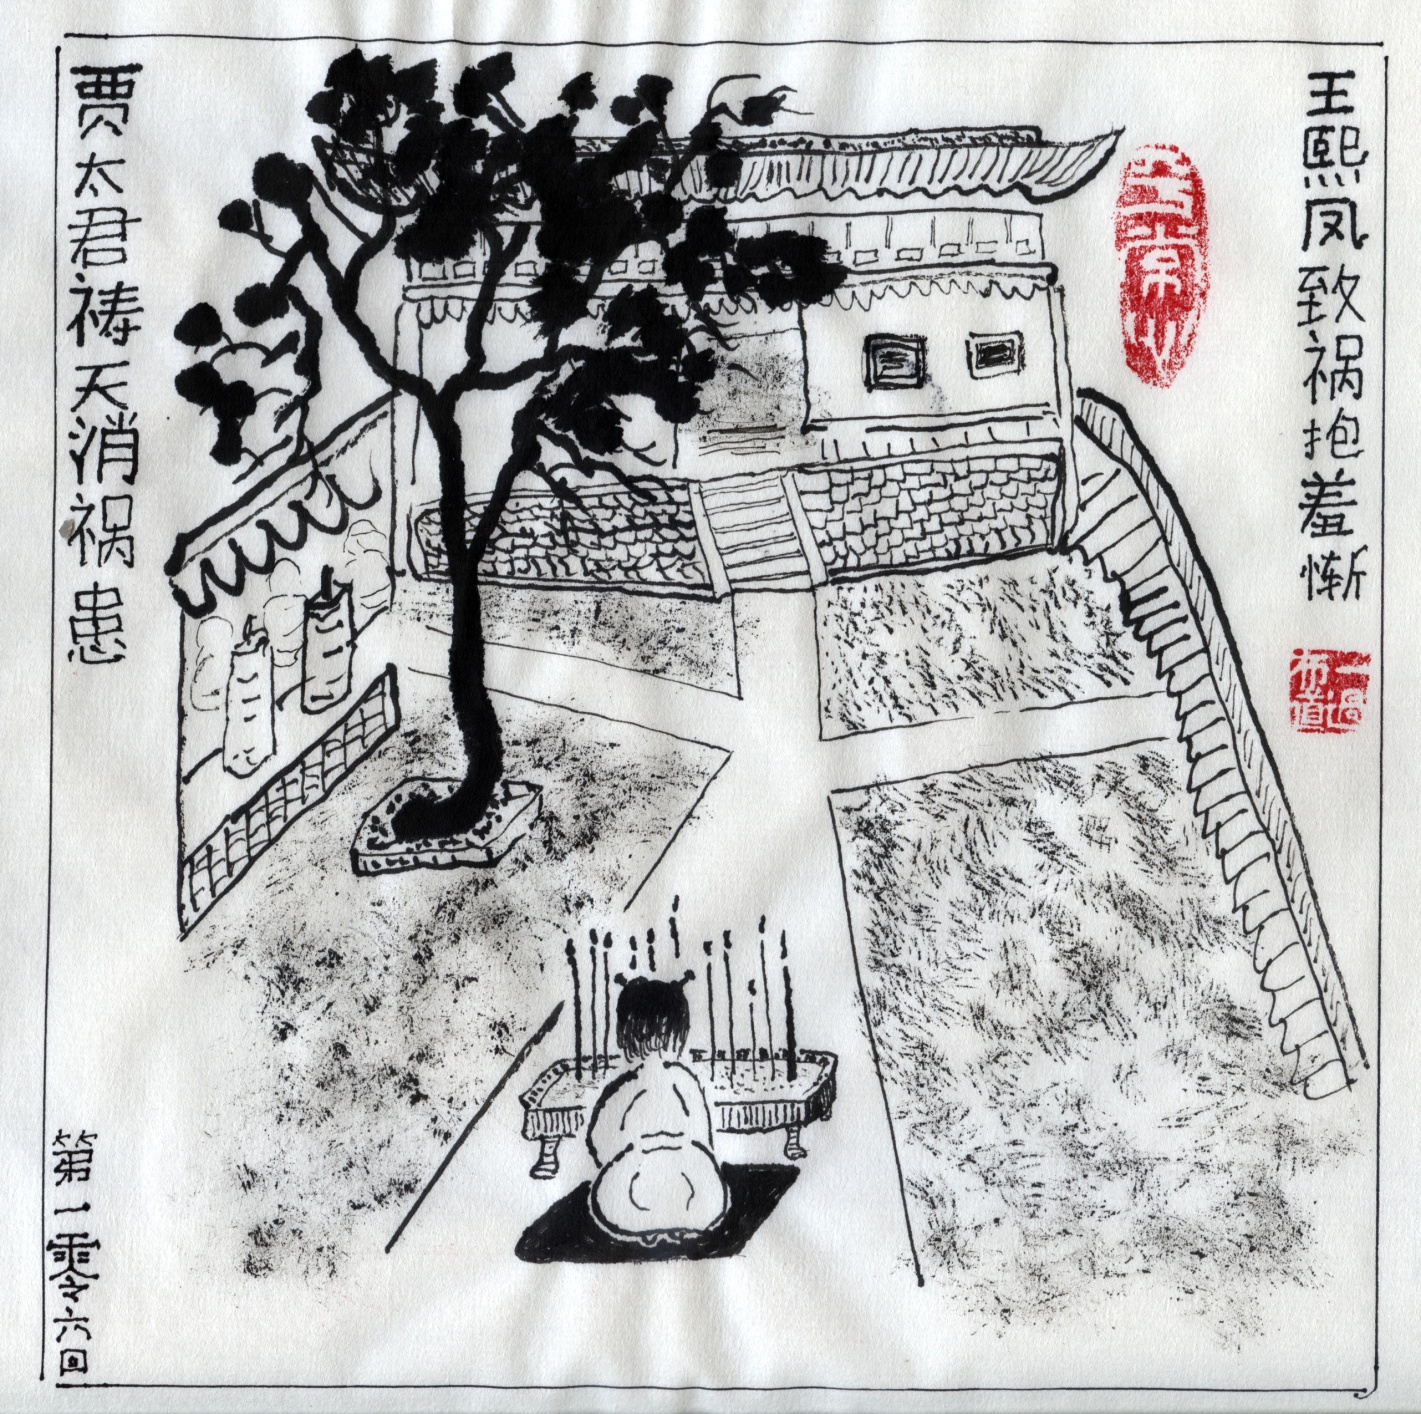 王熙凤致祸抱羞惭
贾太君祷天消祸患
第一零六回